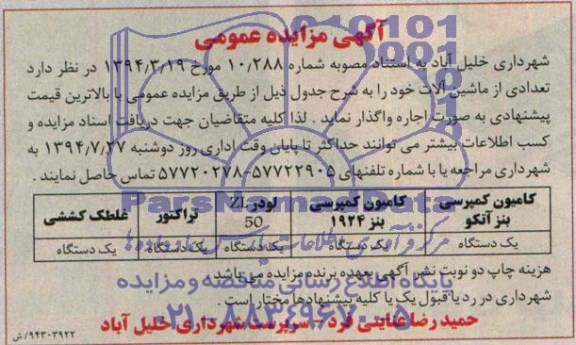 آگهی مزایده عمومی
شهرداری خلیل آباد به استناد مصوبه شماره ۱۰،۲۸۸ مورخ ۱۳۹۴/۳/۱۹ در نظر دارد
تعدادی از ماشین آلات خود را به شرح جدول ذیل از طریق مزایده عمومی با بالاترین قیمت
پیشنهادی به صورت اجاره واگذار نماید . لذا کلیه متقاضیان جهت دریافت اسناد مزایده و
کسب اطلاعات بیشتر می توانند حداکثر تا پایان وقت اداری روز دوشنبه ۱۳۹۴/۷/۲۷ به
شهرداری مراجعه یا با شماره تلفنهای ۵۷۷۲۲۹۰۵-۵۷۷۲۰۲۷۸ تماس حاصل نمایند .
کامیون کمپرسی بنز آتکو | کامیون کمپرسی بنز ۱۹۲۴ | لودر ZL 50 | تراکتور | غلطک کششی
یک دستگاه | یک دستگاه | یک دستگاه | یک دستگاه | یک دستگاه
هزینه چاپ دو نوبت نشر آگهی بعهده برنده مزایده می باشد
شهرداری در رد یا قبول یک یا کلیه پیشنهادها مختار است .
حمید رضا عنایتی فرد - سرپرست شهرداری خلیل آباد
۹۴۳۰۳۹۲۲/ش
ParsNamadData
پایگاه اطلاع رسانی مناقصه و مزایده
۰۲۱-۸۸۳۴۹۶۷۰-۵